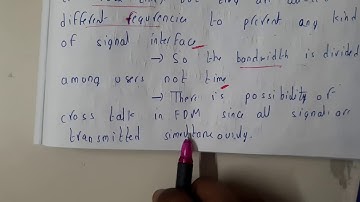 different frequrencies to prevent any kind
of signal interface
→ So the bandwidth is divided
among users not time
→ Ther is possibility of
cross talk in FDM since all signals are
transmitted simultaneously.